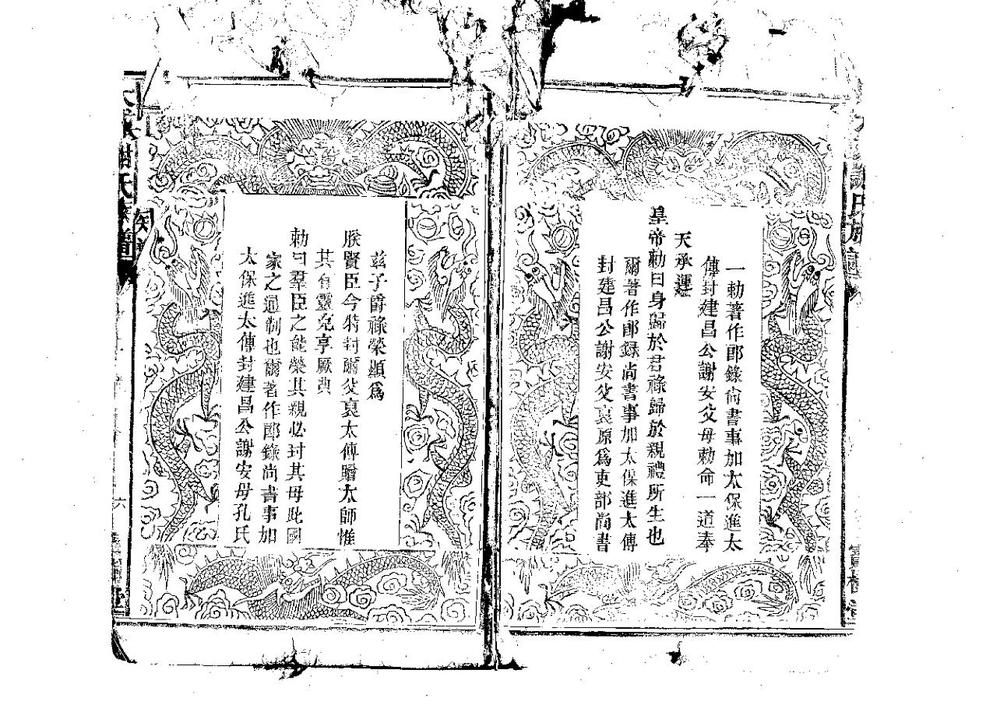 一勅著作郎錄尚書事加太保進太
傳封建昌公謝安父母勅命一道奉
天承運
皇帝勅曰身歸於君祿歸於親禮所生也
爾著作郎録尚書事加太保進太傳
封建昌公謝安父哀原爲吏部尚書
玆子爵祿榮顯爲
朕賢臣今特封爾父哀太傳贈太師惟
其有靈克享厥典
勅曰羣臣之能榮其親必封其母此國
家之通制也爾著作郎錄尚書事如
太保進太傳封建昌公謝安母孔氏
謝氏族譜
六